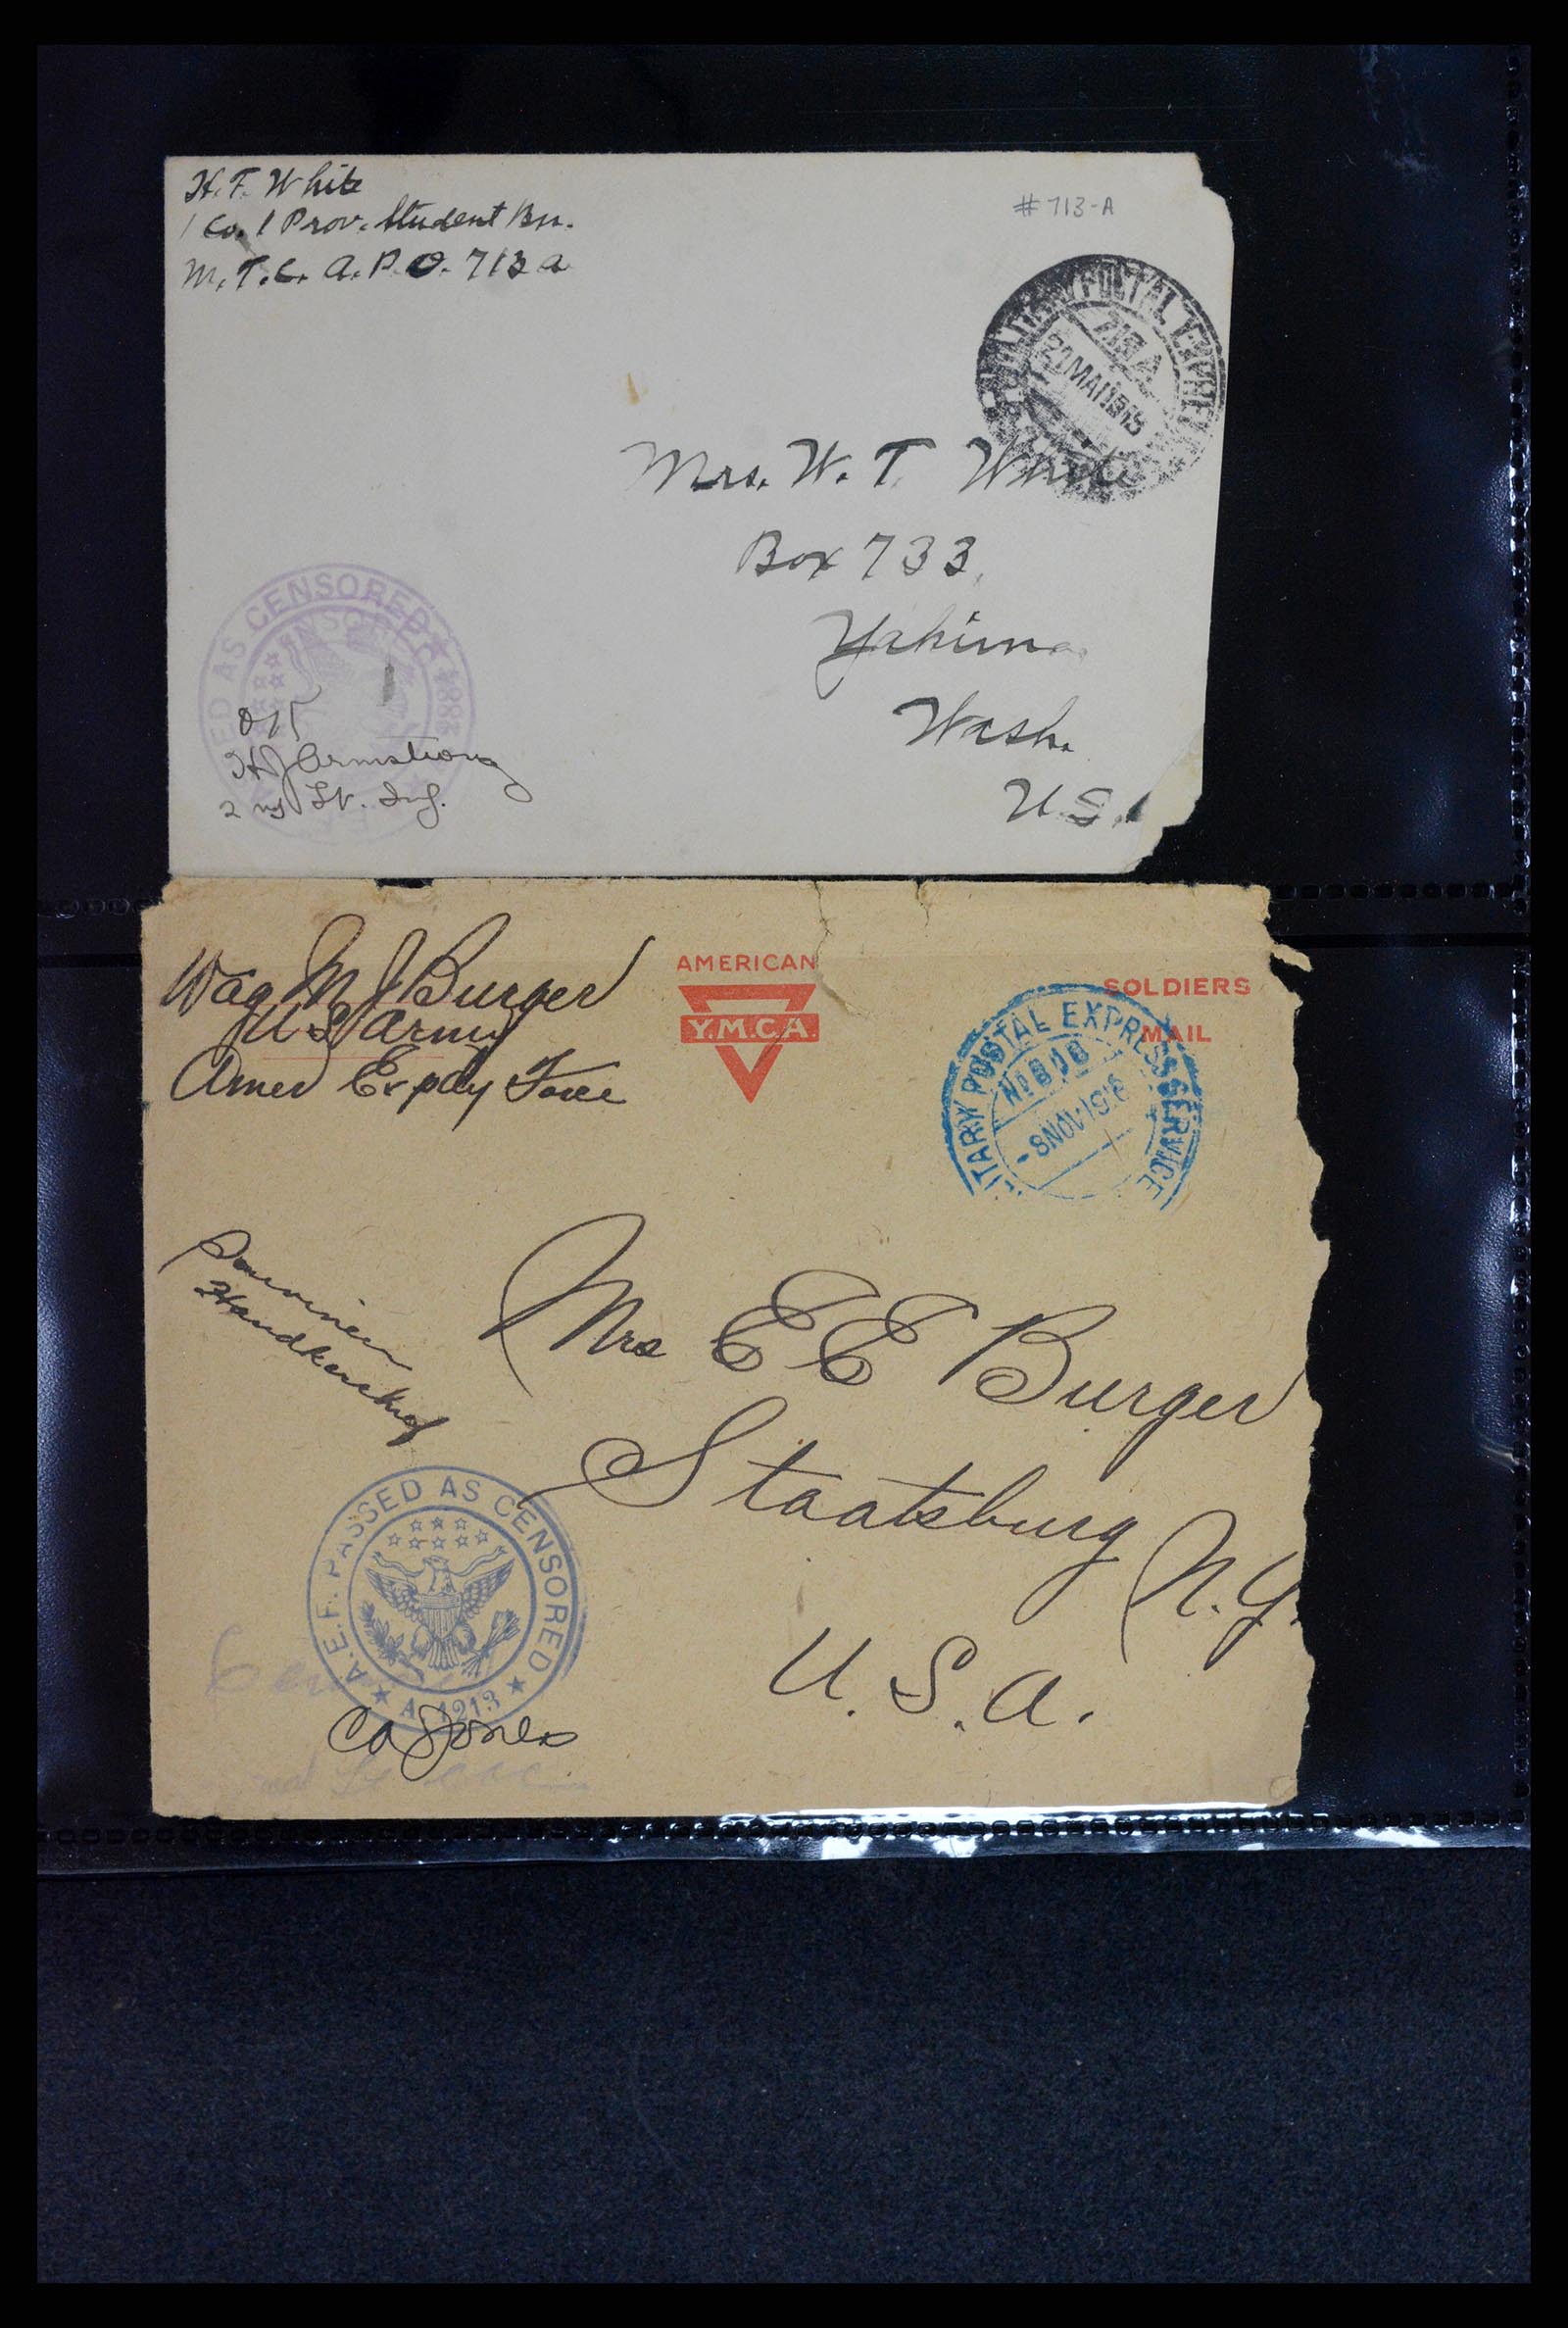 H. F. White
1 Co. 1 Prov. Student Bn.
M. T. C. A. P. O. 713 a
# 713-A
POSTAL EXPRE
713 A
MAI 1919
Mrs. W. T. White
Box 733,
Yakima
Wash.
U.S.
ED AS CENSORED ★ 1884
OK
HJ Armstrong
2nd Lt. Inf.
Wag M J Burger
U S Army
Amer Expdy Force
AMERICAN
Y.M.C.A.
SOLDIERS
MAIL
ITARY POSTAL EXPRESS SERVICE
No
-8 NOV 1918
Souvenir
Handkerchief
Mrs E E Burger
Staatsburg N. Y.
U. S. A.
A.E.F. PASSED AS CENSORED
★ A. 1213 ★
CA Jones